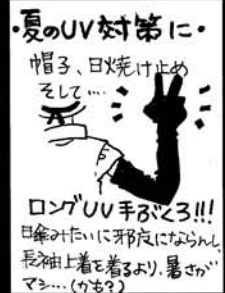 ・夏のUV対策に・
帽子、日焼け止め
そして…
ロングUV手ぶくろ!!!
日傘みたいに邪广にならんし、
長袖上着を着るより、暑さが
マシ…(かも?)